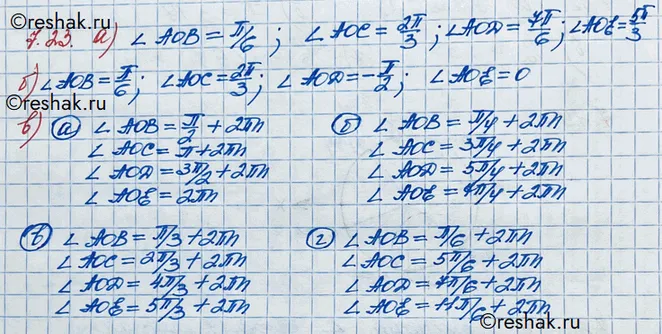 7.23. а) ∠AOB = π/6; ∠AOC = 2π/3; ∠AOD = 7π/6; ∠AOE = 5π/3
©reshak.ru
б) ∠AOB = π/6; ∠AOC = 2π/3; ∠AOD = -π/2; ∠AOE = 0
©reshak.ru
в) а) ∠AOB = π/2 + 2πn
∠AOC = π + 2πn
∠AOD = 3π/2 + 2πn
∠AOE = 2πn
б) ∠AOB = π/4 + 2πn
∠AOC = 3π/4 + 2πn
∠AOD = 5π/4 + 2πn
∠AOE = 7π/4 + 2πn
в) ∠AOB = π/3 + 2πn
∠AOC = 2π/3 + 2πn
∠AOD = 4π/3 + 2πn
∠AOE = 5π/3 + 2πn
г) ∠AOB = π/6 + 2πn
∠AOC = 5π/6 + 2πn
∠AOD = 7π/6 + 2πn
∠AOE = 11π/6 + 2πn
©reshak.ru